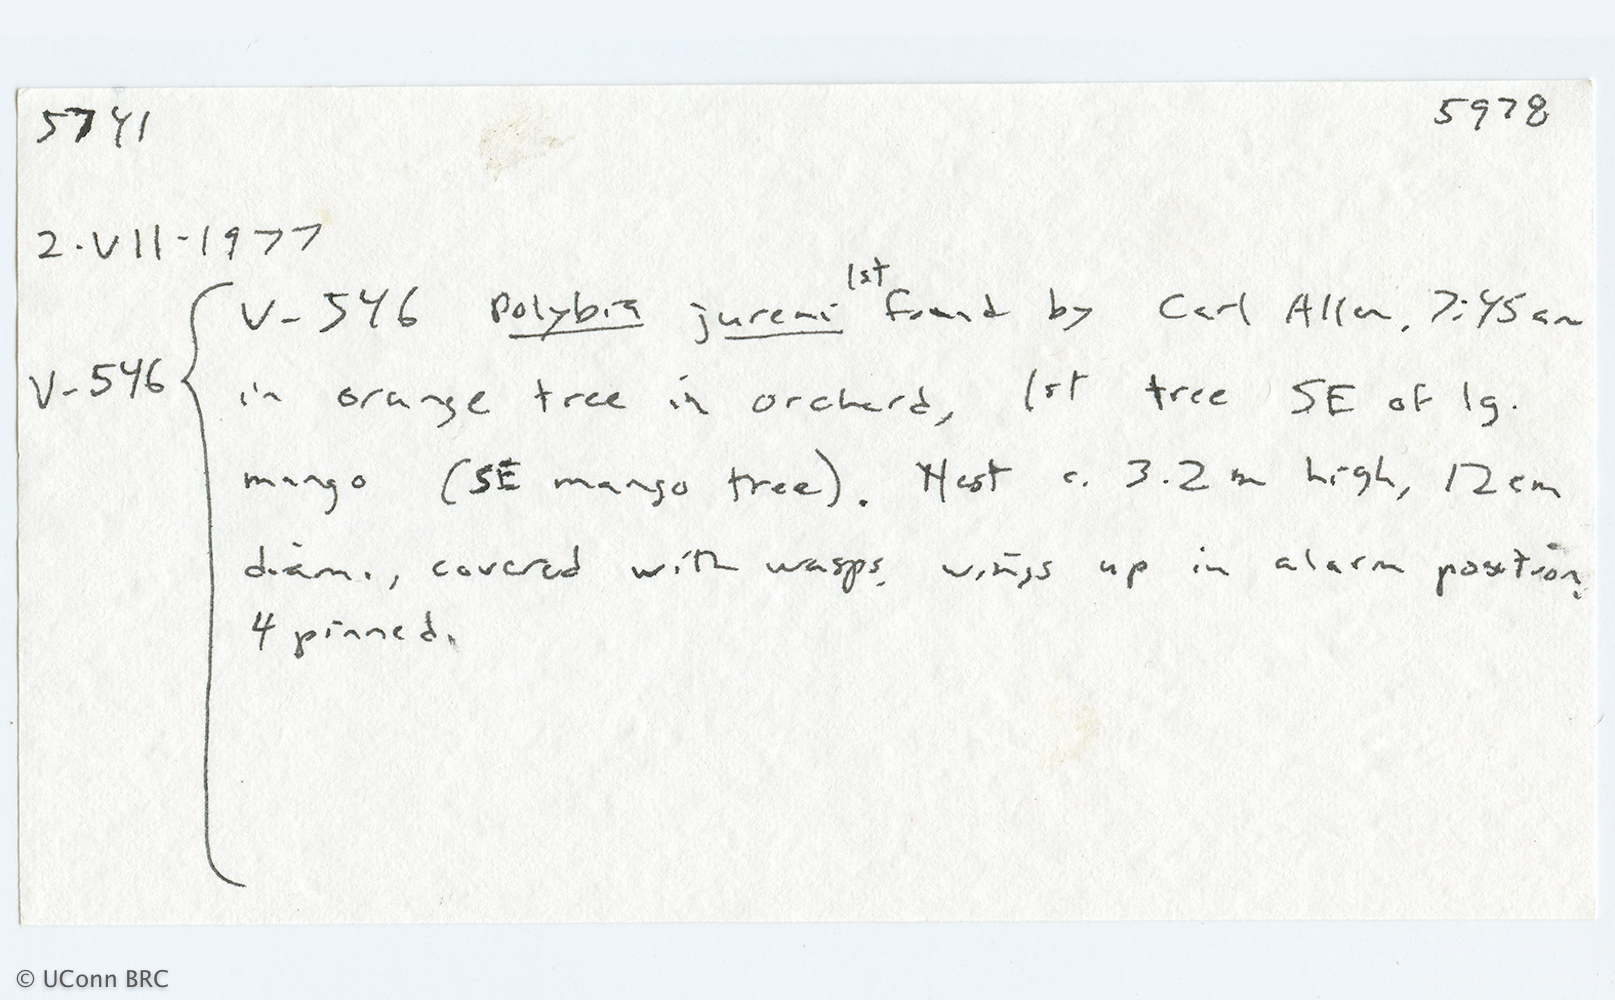 5741 5978
2·VII-1977
V-546 Polybia juremi 1st found by Carl Allen, 7:45am
V-546
in orange tree in orchard, 1st tree SE of lg.
mango (SE mango tree). Nest c. 3.2 m high, 12 cm
diam., covered with wasps, wings up in alarm position.
4 pinned.
© UConn BRC